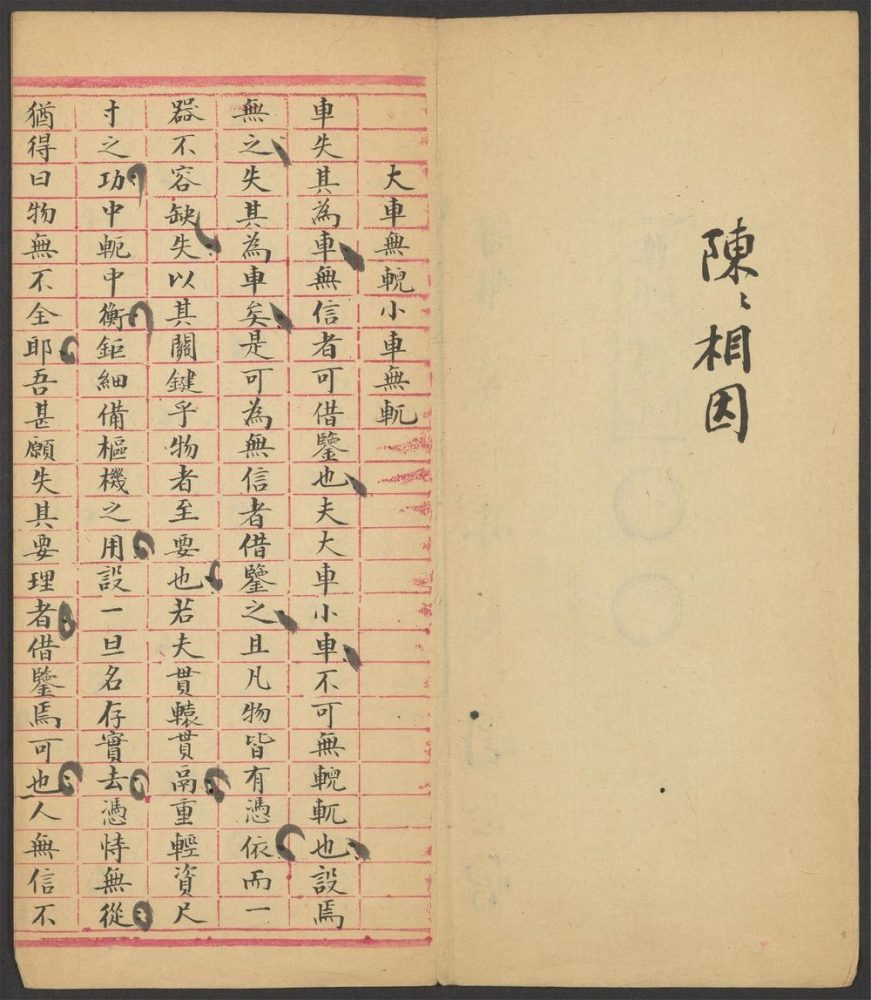 陳〻相因
大車無輗小車無軏
車失其為車無信者可借鑒也夫大車小車不可無輗軏也設焉
無之失其為車矣是可為無信者借鑒之且凡物皆有憑依而一
器不容缺失以其關鍵乎物者至要也若夫貫轅貫鬲重輕資尺
寸之功中軛中衡鉅細備樞機之用設一旦名存實去憑恃無從
猶得曰物無不全耶吾甚願失其要理者借鑒焉可也人無信不